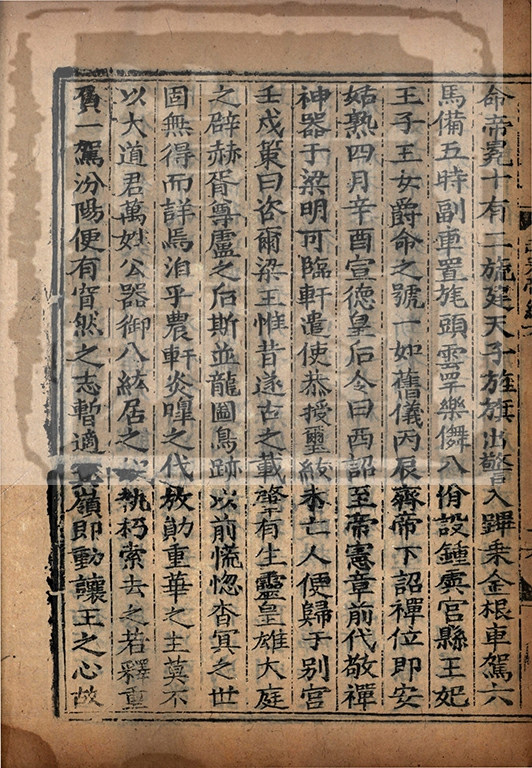 命帝冕十有二旒建天子旌旗出警入蹕乘金根車駕六
馬備五時副車置旄頭雲罕樂儛八佾設鍾虡宮縣王妃
王子王女爵命之號一如舊儀丙辰齊帝下詔禪位即安
姑熟四月辛酉宣德皇后令曰西詔至帝憲章前代敬禪
神器于梁明可臨軒遣使恭授璽紱未亡人便歸于別宮
壬戌策曰咨爾梁王惟昔遂古之載肇有生靈皇雄大庭
之辟赫胥尊盧之后斯並龍圖鳥跡以前慌惚杳冥之世
固無得而詳焉洎乎農軒炎皞之代放勛重華之主莫不
以大道君萬姓公器御八紘居之執朽索去之若釋重
負一駕汾陽便有窅然之志暫適嶺即動讓王之心故